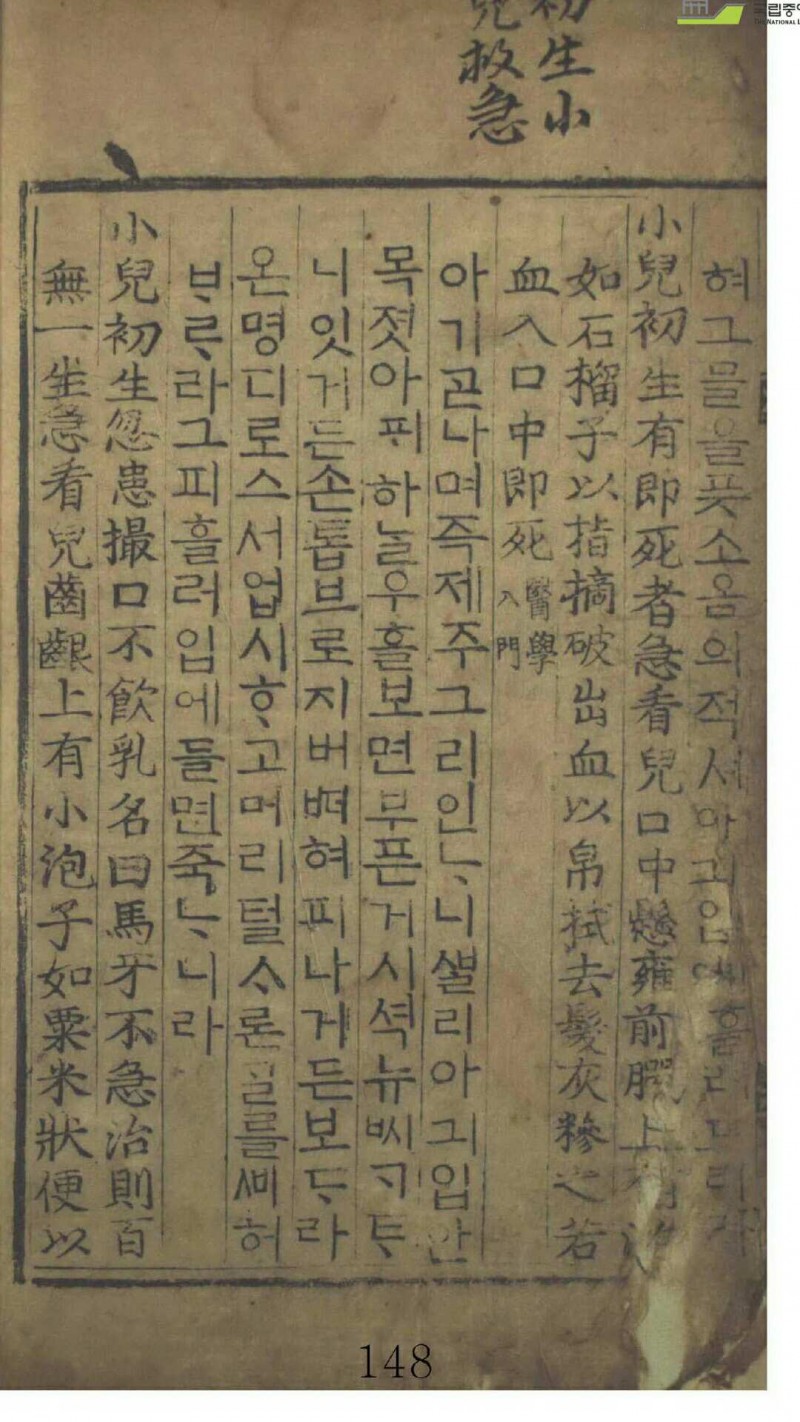 初生小
兒救急
혀그믈을픗소옴의적셔아긔입에흘리
小兒初生有即死者急看兒口中懸雍前腭上有
如石榴子以指摘破出血以帛拭去髮灰糝之若
血入口中即死醫學入門
아기ᄀᆞᆮ나며즉제주그리인ᄂᆞ니ᄲᆞᆯ리아긔입안
목졋아ᄑᆡ하ᄂᆞᆯ우흘보면부픈거시셕뉴ᄡᅵᄀᆞᄐᆞ
니잇거든손톱브로지버ᄩᅥ혀피나게든보ᄃᆞ라
온명디로스서업시ᄒᆞ고머리털ᄉᆞ론ᄌᆡ를ᄲᅵ허
ᄇᆞᄅᆞ라그피흘러입에들면죽ᄂᆞ니라
小兒初生忽患撮口不飮乳名曰馬牙不急治則百
無一生急看兒齒齦上有小泡子如粟米狀便以
148